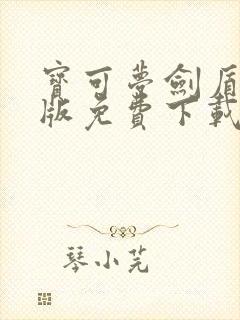 寶可夢劍盾
版免費下載
琴小芫